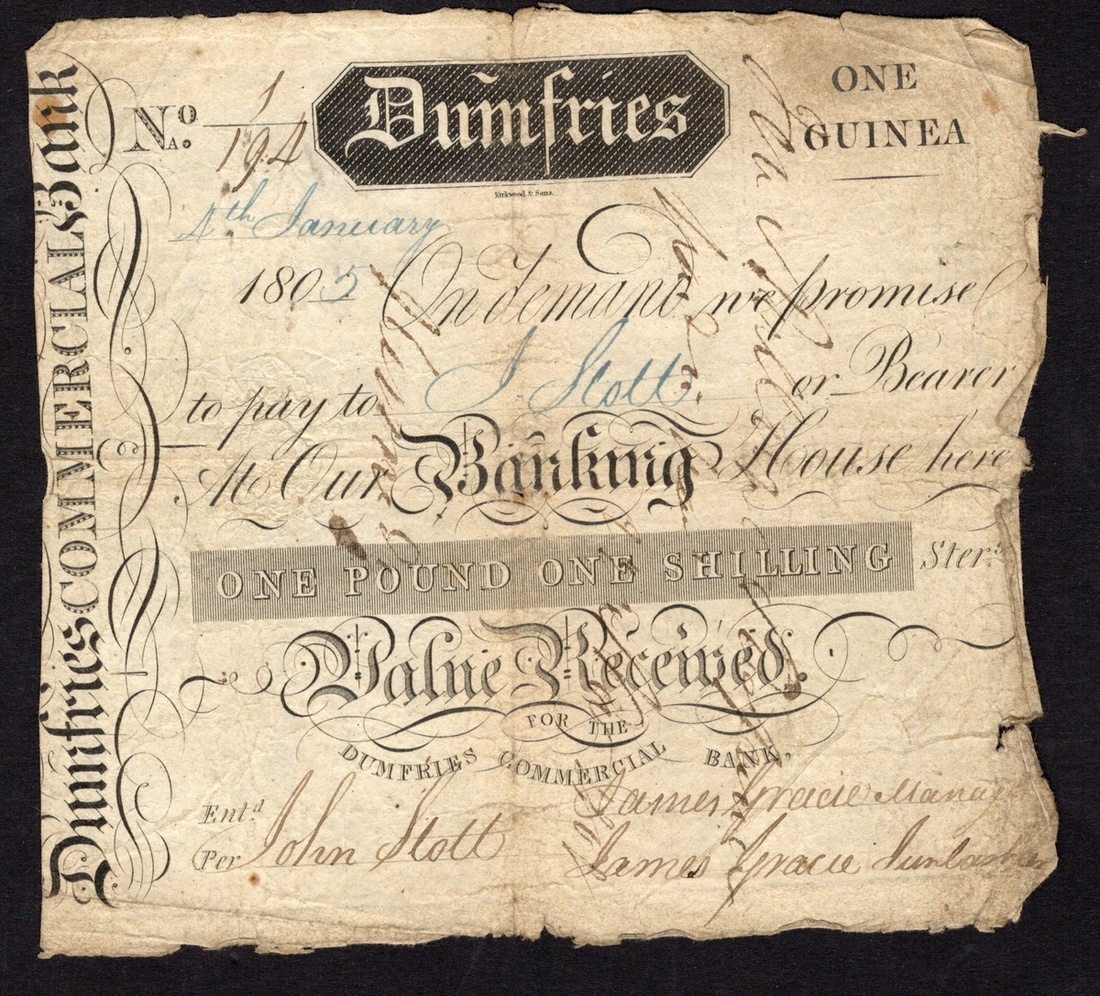 Dumfries COMMERCIAL Bank
No. 1/194
Dumfries
ONE
GUINEA
Kirkwood & Sons.
4th January
1805 On demand we promise
to pay to J Stott or Bearer
At Our Banking House here
ONE POUND ONE SHILLING Ster.
Value Received.
FOR THE
DUMFRIES COMMERCIAL BANK.
Entd
James Gracie Manag
Per John Stott
James Gracie Junr